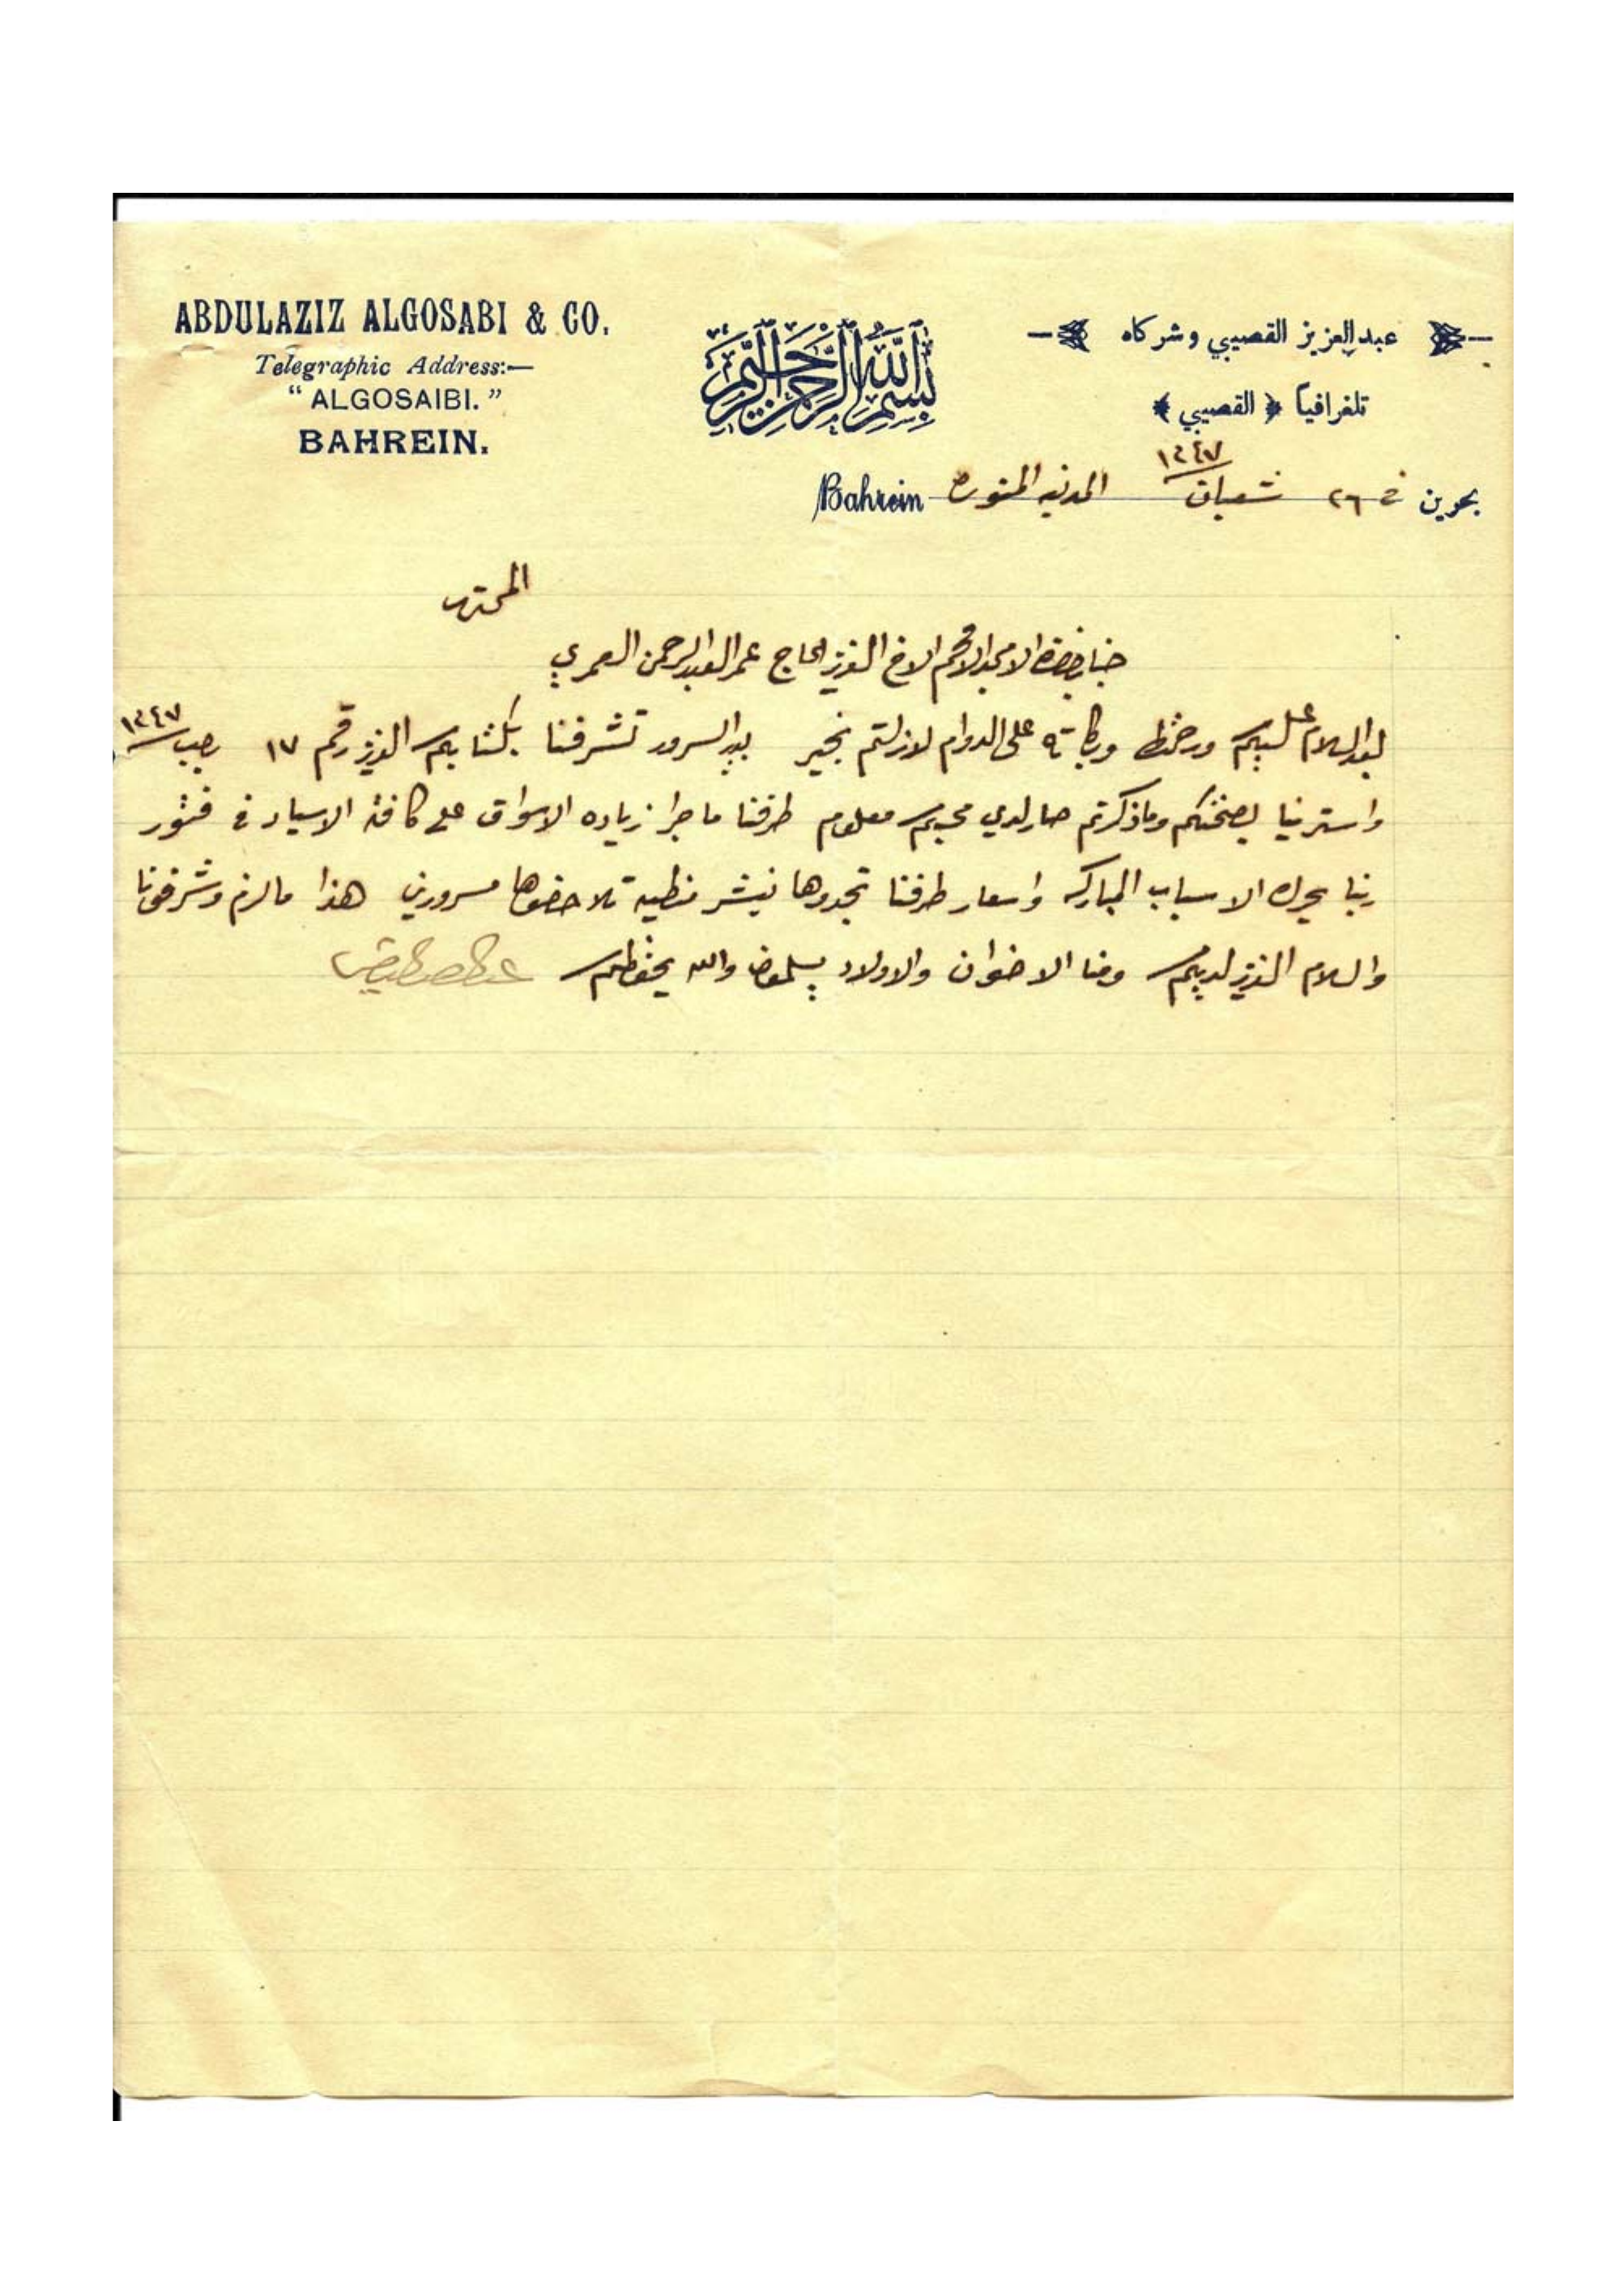 ABDULAZIZ ALGOSABI & CO.
Telegraphic Address:—
“ ALGOSAIBI. ”
BAHREIN.
بسم الله الرحمن الرحيم
عبد العزيز القصيبي وشركاه
تلغرافياً ﴿ القصيبي ﴾
بحرين في ٢٦ شعبان ١٣٤٧ المدينه المنوره Bahrein
المحترم
جناب حضرة الامجد الافخم الاخ العزيز الحاج عمر العبدالرحمن العمري
بعد السلام عليكم ورحمة الله وبركاته على الدوام لازلتم بخير بيد السرور تشرفنا بكتابكم العزيز رقم ١٧ رجب ١٣٤٧
واسترينا بصحتكم وماذكرتم صار لدي محبكم معلوم طرفنا ما جرا زياده الاسواق على كافة الاسياد في فتور
ربنا يحرك الاسباب المباركه واسعار طرفنا تجدوها تلاحضوها مسرورين هذا مالزم وشرفونا
والسلام العزيز لديكم ومنا الاخوان والاولاد يسلمون والله يحفظكم